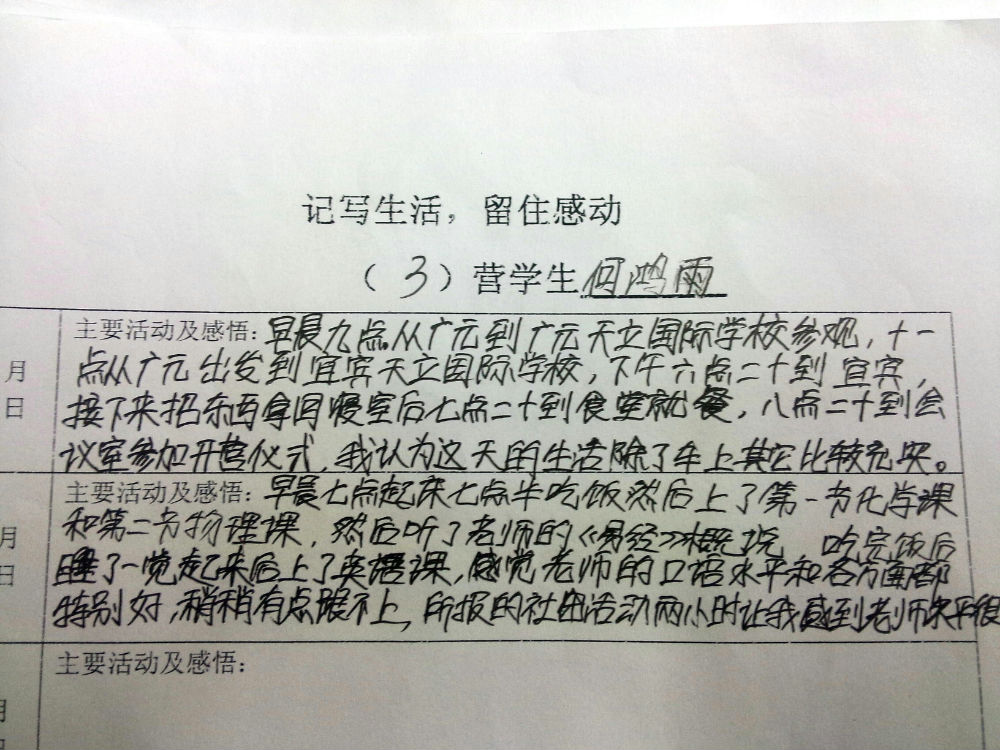 记写生活，留住感动
（3）营学生何鸿雨
主要活动及感悟：早晨九点从广元到广元天立国际学校参观，十一
月
点从广元出发到宜宾天立国际学校，下午六点二十到宜宾，
日
接下来把东西拿回寝室后七点二十到食堂就餐，八点二十到会
议室参加开营仪式，我认为这天的生活除了车上其它比较充实。
主要活动及感悟：早晨七点起床七点半吃饭然后上了第一节化学课
月
和第二节物理课，然后听了老师的《易经》概说，吃完饭后
日
睡了一觉起来后上了英语课，感觉老师的口语水平和各方面都
特别好，稍稍有点跟不上，所报的社团活动两小时让我感到老师水平很
主要活动及感悟：
月
日